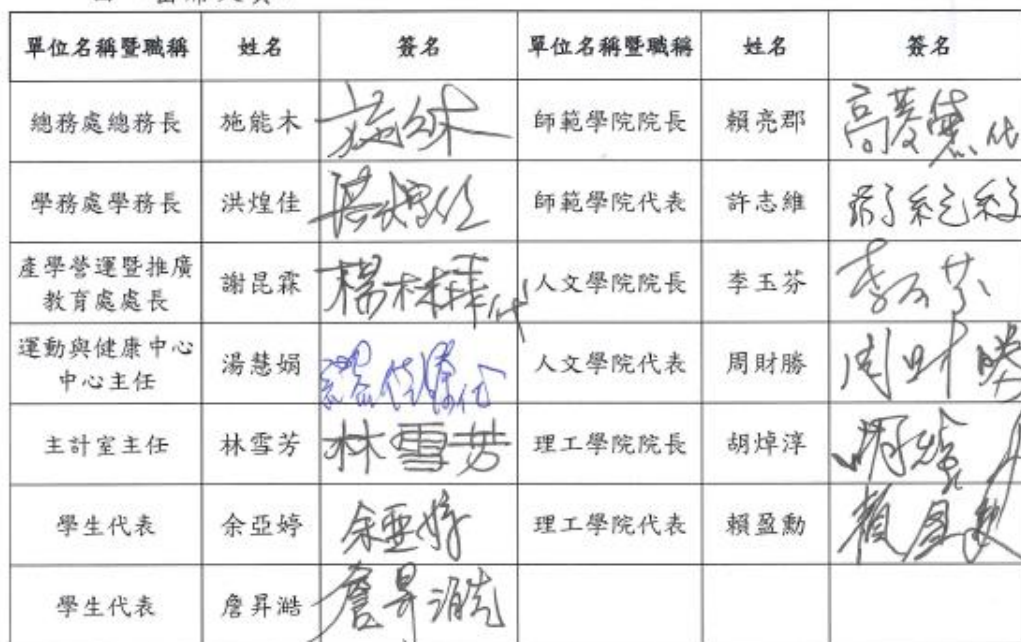 單位名稱暨職稱 姓名 簽名 單位名稱暨職稱 姓名 簽名
總務處總務長 施能木 師範學院院長 賴亮郡 代
學務處學務長 洪煌佳 師範學院代表 許志維
產學營運暨推廣
教育處處長 謝昆霖 代 人文學院院長 李玉芬 李玉芬
運動與健康中心
中心主任 湯慧娟 人文學院代表 周財勝 周財勝
主計室主任 林雪芳 林雪芳 理工學院院長 胡焯淳
學生代表 余亞婷 余亞婷 理工學院代表 賴盈勳 賴盈勳
學生代表 詹昇澔 詹昇澔